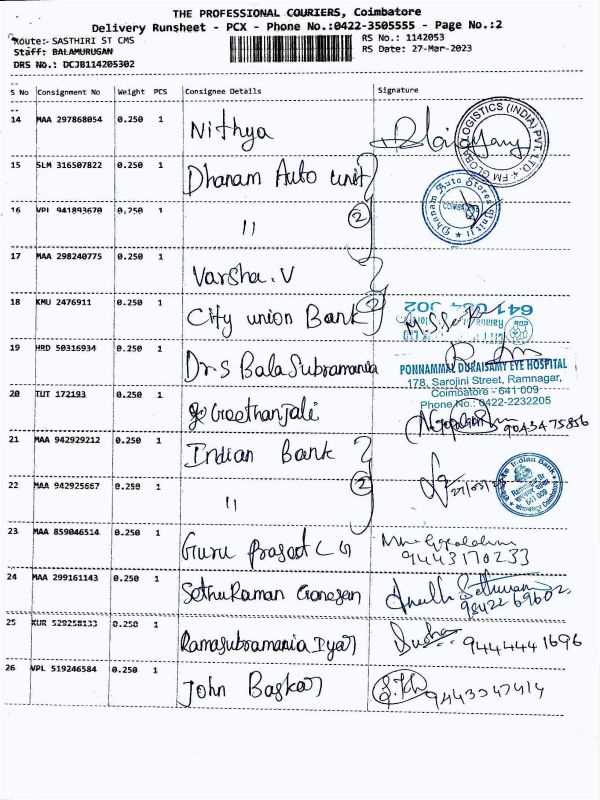 THE PROFESSIONAL COURIERS, Coimbatore
Delivery Runsheet - PCX - Phone No.:0422-3505555 - Page No.:2
Route:- SASTHIRI ST CMS
RS No.: 1142053
Staff: BALAMURUGAN
RS Date: 27-Mar-2023
DRS No.: DCJB114205302
S No Consignment No Weight PCS Consignee Details Signature
14 MAA 297868054 0.250 1 Nithya
LOGISTICS (INDIA) PVT. LTD. ★ FM GLOBO
15 SLM 316507822 0.250 1 Dhanam Auto unit
Dhanam Auto Stores Unit II ★
COIMBATORE
16 VPL 941893670 0.250 1 11
2
17 MAA 298240775 0.250 1 Varsha.V
2
18 KMU 2476911 0.250 1 City union Bank
641 001
19 HRD 50316934 0.250 1 Dr.S Bala Subramania
PONNAMMAL DURAISAMY EYE HOSPITAL
178, Sarojini Street, Ramnagar,
Coimbatore - 641 009
Phone No.: 0422-2232205
20 TUT 172193 0.250 1 Geethanjali
9043475856
21 MAA 942929212 0.250 1 Indian Bank
Indian Bank
22 MAA 942925667 0.250 1 11
2
641 009
23 MAA 859046514 0.250 1 Guru Prasad L G
9443170233
24 MAA 299161143 0.250 1 SethuRaman Ganesan
98422 69602
25 KUR 529258133 0.250 1 Ramasubramania Iyar
Sudha 9444441696
26 VPL 519246584 0.250 1 John Baskar